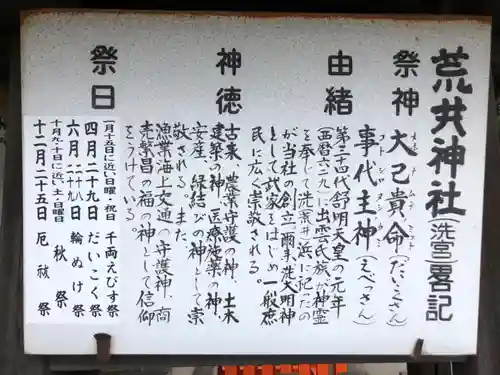 荒井神社(洗宮)畧記
祭神 大己貴命(だいこくさん)
オホナムチノミコト
事代主神(えべっさん)
コトシロヌシノカミ
由緒
第三十四代舒明天皇の元年
(西暦六二九)に出雲民族が神霊
を奉じて洗荒井浜に祀ったの
が当社の創立 爾来洗大明神
として武家をはじめ一般庶
民に広く崇敬される。
神徳
古来、農業守護の神、土木
建築の神、医療施薬の神、
安産、縁結びの神として崇
敬される。また、
漁業海上交通の守護神、商
売繁昌の福の神として信仰
をうけている。
祭日
一月十五日に近い日曜・祝日 千両えびす祭
四月二十九日 だいこく祭
六月二十九日 輪ぬけ祭
十月九・十日に近い土・日曜日 秋祭
十二月二十五日 厄祓祭